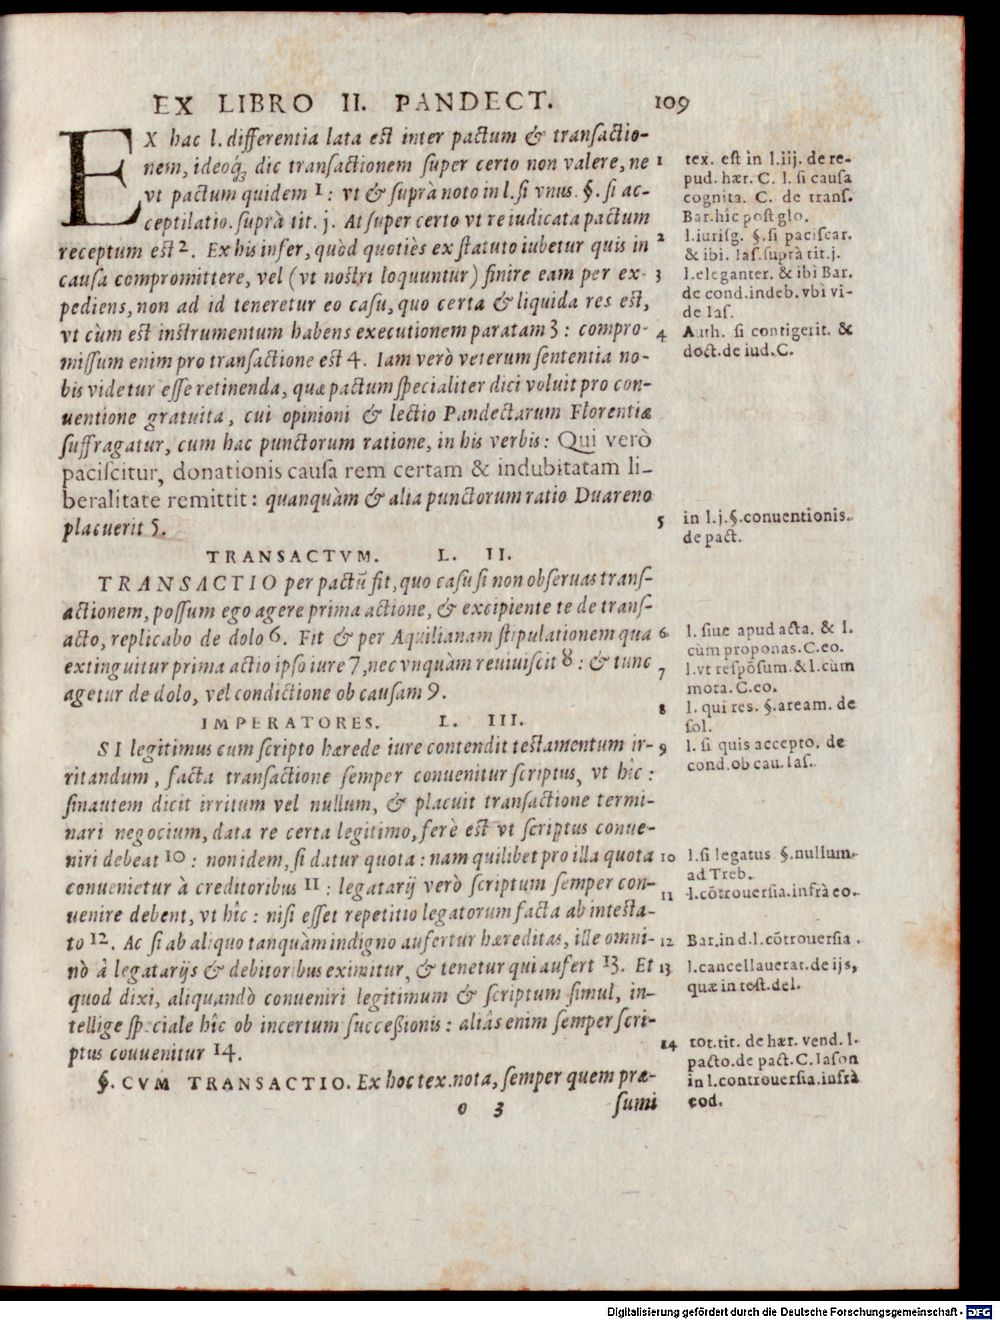 EX LIBRO II. PANDECT. 109
EX hac l. differentia lata est inter pactum & transactio-
nem, ideoq́ꝫ dic transactionem super certo non valere, ne
vt pactum quidem 1 : vt & suprà noto in l. si vnus. §. si ac-
ceptilatio. suprà tit. j. At super certo vt re iudicata pactum
receptum est 2. Ex his infer, quòd quotiès ex statuto iubetur quis in
causa compromittere, vel (vt nostri loquuntur) finire eam per ex-
pediens, non ad id teneretur eo casu, quo certa & liquida res est,
vt cùm est instrumentum habens executionem paratam 3 : compro-
missum enim pro transactione est 4. Iam verò veterum sententia no-
bis videtur esse retinenda, quæ pactum specialiter dici voluit pro con-
uentione gratuita, cui opinioni & lectio Pandectarum Florentiæ
suffragatur, cum hac punctorum ratione, in his verbis: Qui verò
paciscitur, donationis causa rem certam & indubitatam li-
beralitate remittit: quanquàm & alia punctorum ratio Duareno
placuerit 5.
TRANSACTVM. L. II.
TRANSACTIO per pactũ fit, quo casu si non obseruas trans-
actionem, possum ego agere prima actione, & excipiente te de trans-
acto, replicabo de dolo 6. Fit & per Aquilianam stipulationem qua
extinguitur prima actio ipso iure 7, nec vnquàm reuiuiscit 8 : & tunc
agetur de dolo, vel condictione ob causam 9.
IMPERATORES. L. III.
SI legitimus cum scripto hærede iure contendit testamentum ir-
ritandum, facta transactione semper conuenitur scriptus, vt hîc:
sinautem dicit irritum vel nullum, & placuit transactione termi-
nari negocium, data re certa legitimo, ferè est vt scriptus conue-
niri debeat 10 : non idem, si datur quota: nam quilibet pro illa quota
conuenietur à creditoribus 11 : legatarij verò scriptum semper con-
uenire debent, vt hîc: nisi esset repetitio legatorum facta ab intesta-
to 12. Ac si ab aliquo tanquàm indigno aufertur hæreditas, ille omni-
nò à legatarijs & debitoribus eximitur, & tenetur qui aufert 13. Et
quod dixi, aliquandò conueniri legitimum & scriptum simul, in-
tellige speciale hîc ob incertum successionis: aliâs enim semper scri-
ptus couuenitur 14.
§. CVM TRANSACTIO. Ex hoc tex. nota, semper quem præ-
o 3 sumi
1 tex. est in l. iij. de re-
pud. hær. C. l. si causa
cognita. C. de trans.
Bar. hîc post glo.
2 l. iurisg. §. si paciscar.
& ibi. Ias. suprà tit. j.
3 l. eleganter. & ibi Bar.
de cond. indeb. vbi vi-
de Ias.
4 Auth. si contigerit. &
doct. de iud. C.
5 in l. j. §. conuentionis.
de pact.
6 l. siue apud acta. & l.
cùm proponas. C. eo.
7 l. vt respõsum. & l. cùm
mota. C. eo.
8 l. qui res. §. aream. de
sol.
9 l. si quis accepto. de
cond. ob cau. Ias.
10 l. si legatus. §. nullum.
ad Treb.
11 d. l. cõtrouersia. infrà eo.
12 Bar. in d. l. cõtrouersia.
13 l. cancellauerat. de ijs,
quæ in test. del.
14 tot. tit. de hær. vend. l.
pacto. de pact. C. Iason
in l. controuersia. infrà
eod.
Digitalisierung gefördert durch die Deutsche Forschungsgemeinschaft - DFG